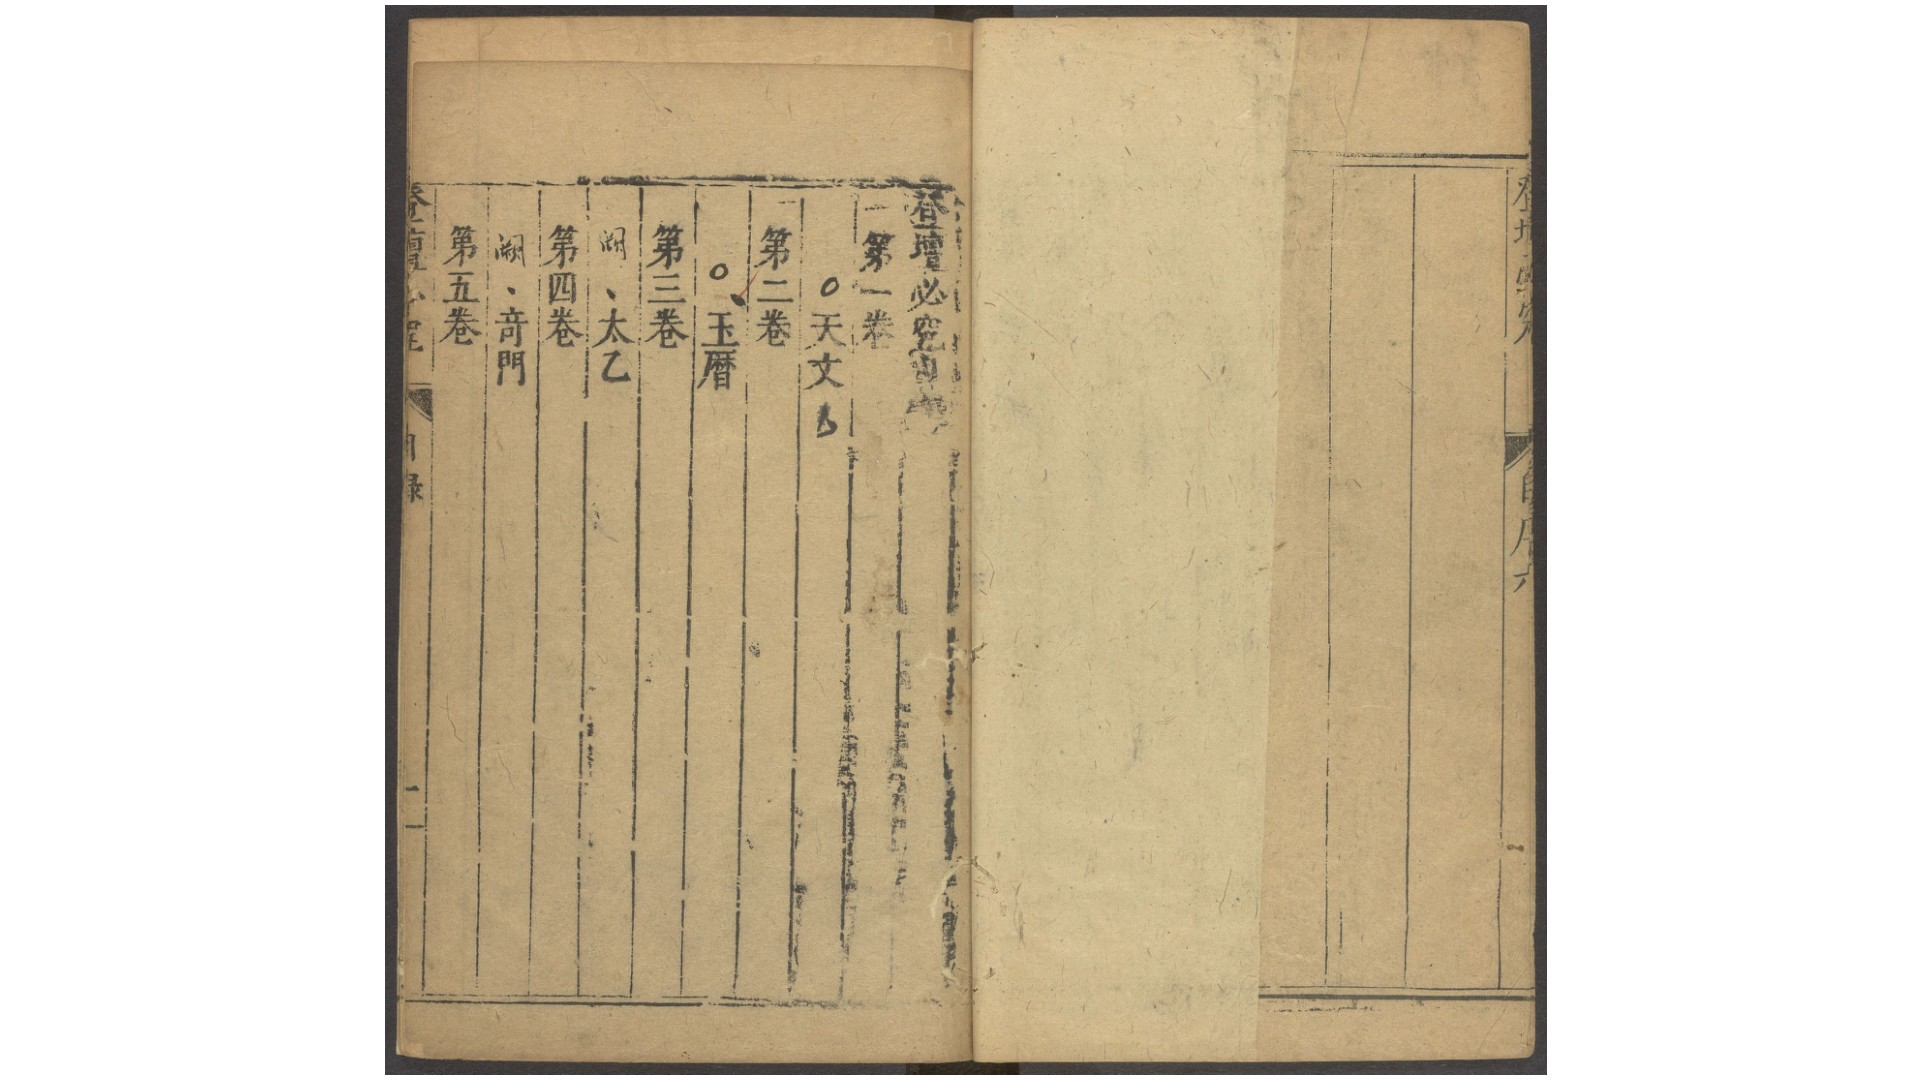 登壇必究
登壇必究目錄
第一卷
天文
第二卷
玉曆
第三卷
闕、太乙
第四卷
闕、竒門
第五卷
登壇必究
目錄
一